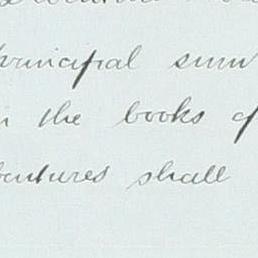 principal sum
in the books of
bentures shall